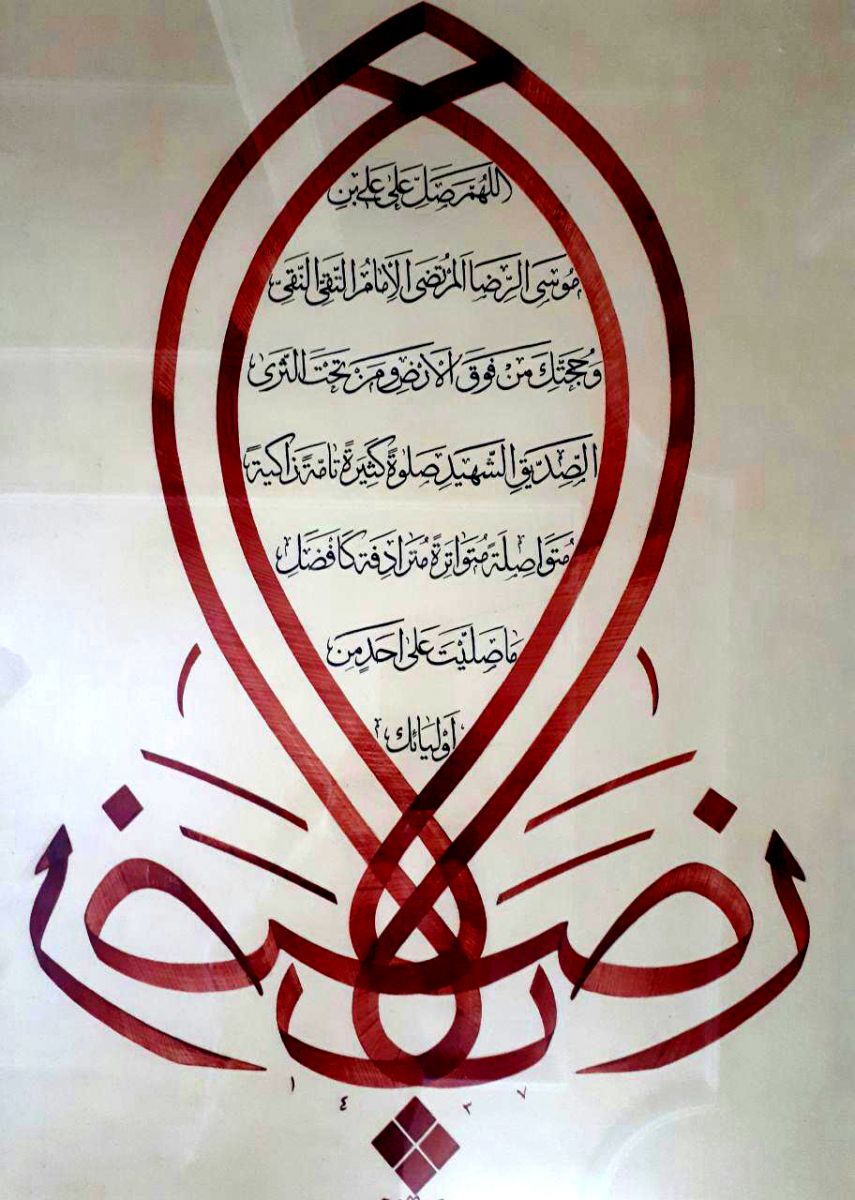 اللهُمَّ صَلِّ عَلى علي بنِ
مُوسَى الرِّضَا المرُتضى الاِمامُ التّقيِّ النّقيِّ
وحُجَّتِكَ مَن فوقَ الارَضِ ومَنْ تحْتَ الثّرى
الصِدّيقِ الشّهيدِ صَلوةً كثيرَةً تامّةً زاكيةً
مُتَواصِلةً مُتواتِرةً مُترادِفة كافضَلِ
ماصَليّتَ عَلى احَدٍ مِن
أوْليائك
رضا
١٤٣٧